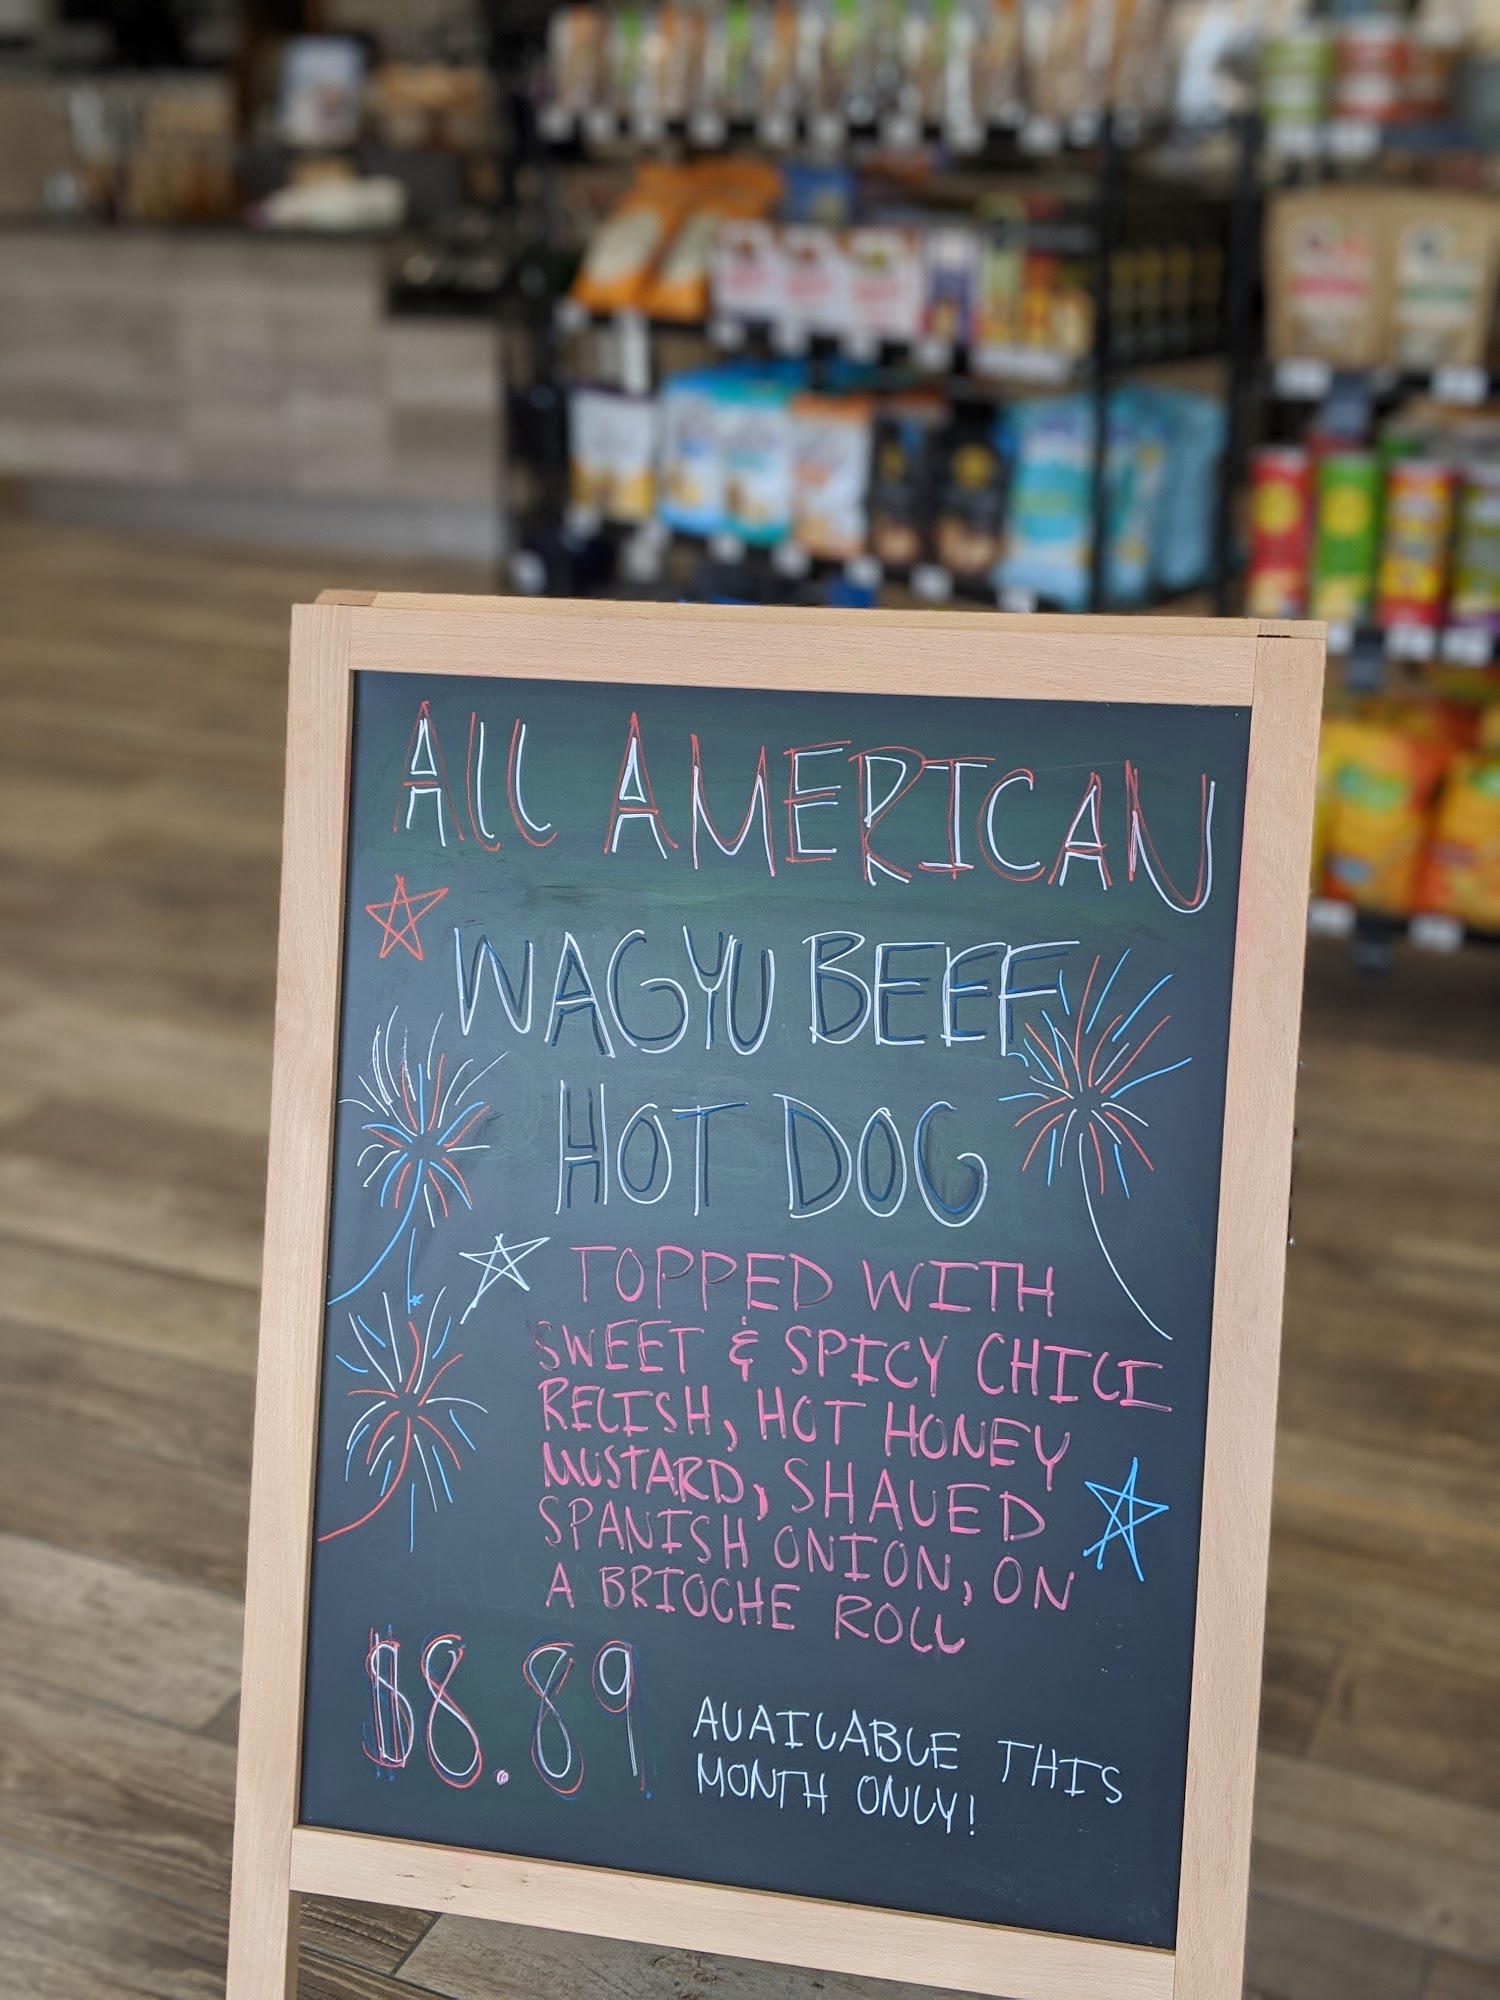 ALL AMERICAN
WAGYU BEEF
HOT DOG
TOPPED WITH
SWEET & SPICY CHILI
RELISH, HOT HONEY
MUSTARD, SHAVED
SPANISH ONION, ON
A BRIOCHE ROLL
$8.89
AVAILABLE THIS
MONTH ONLY!